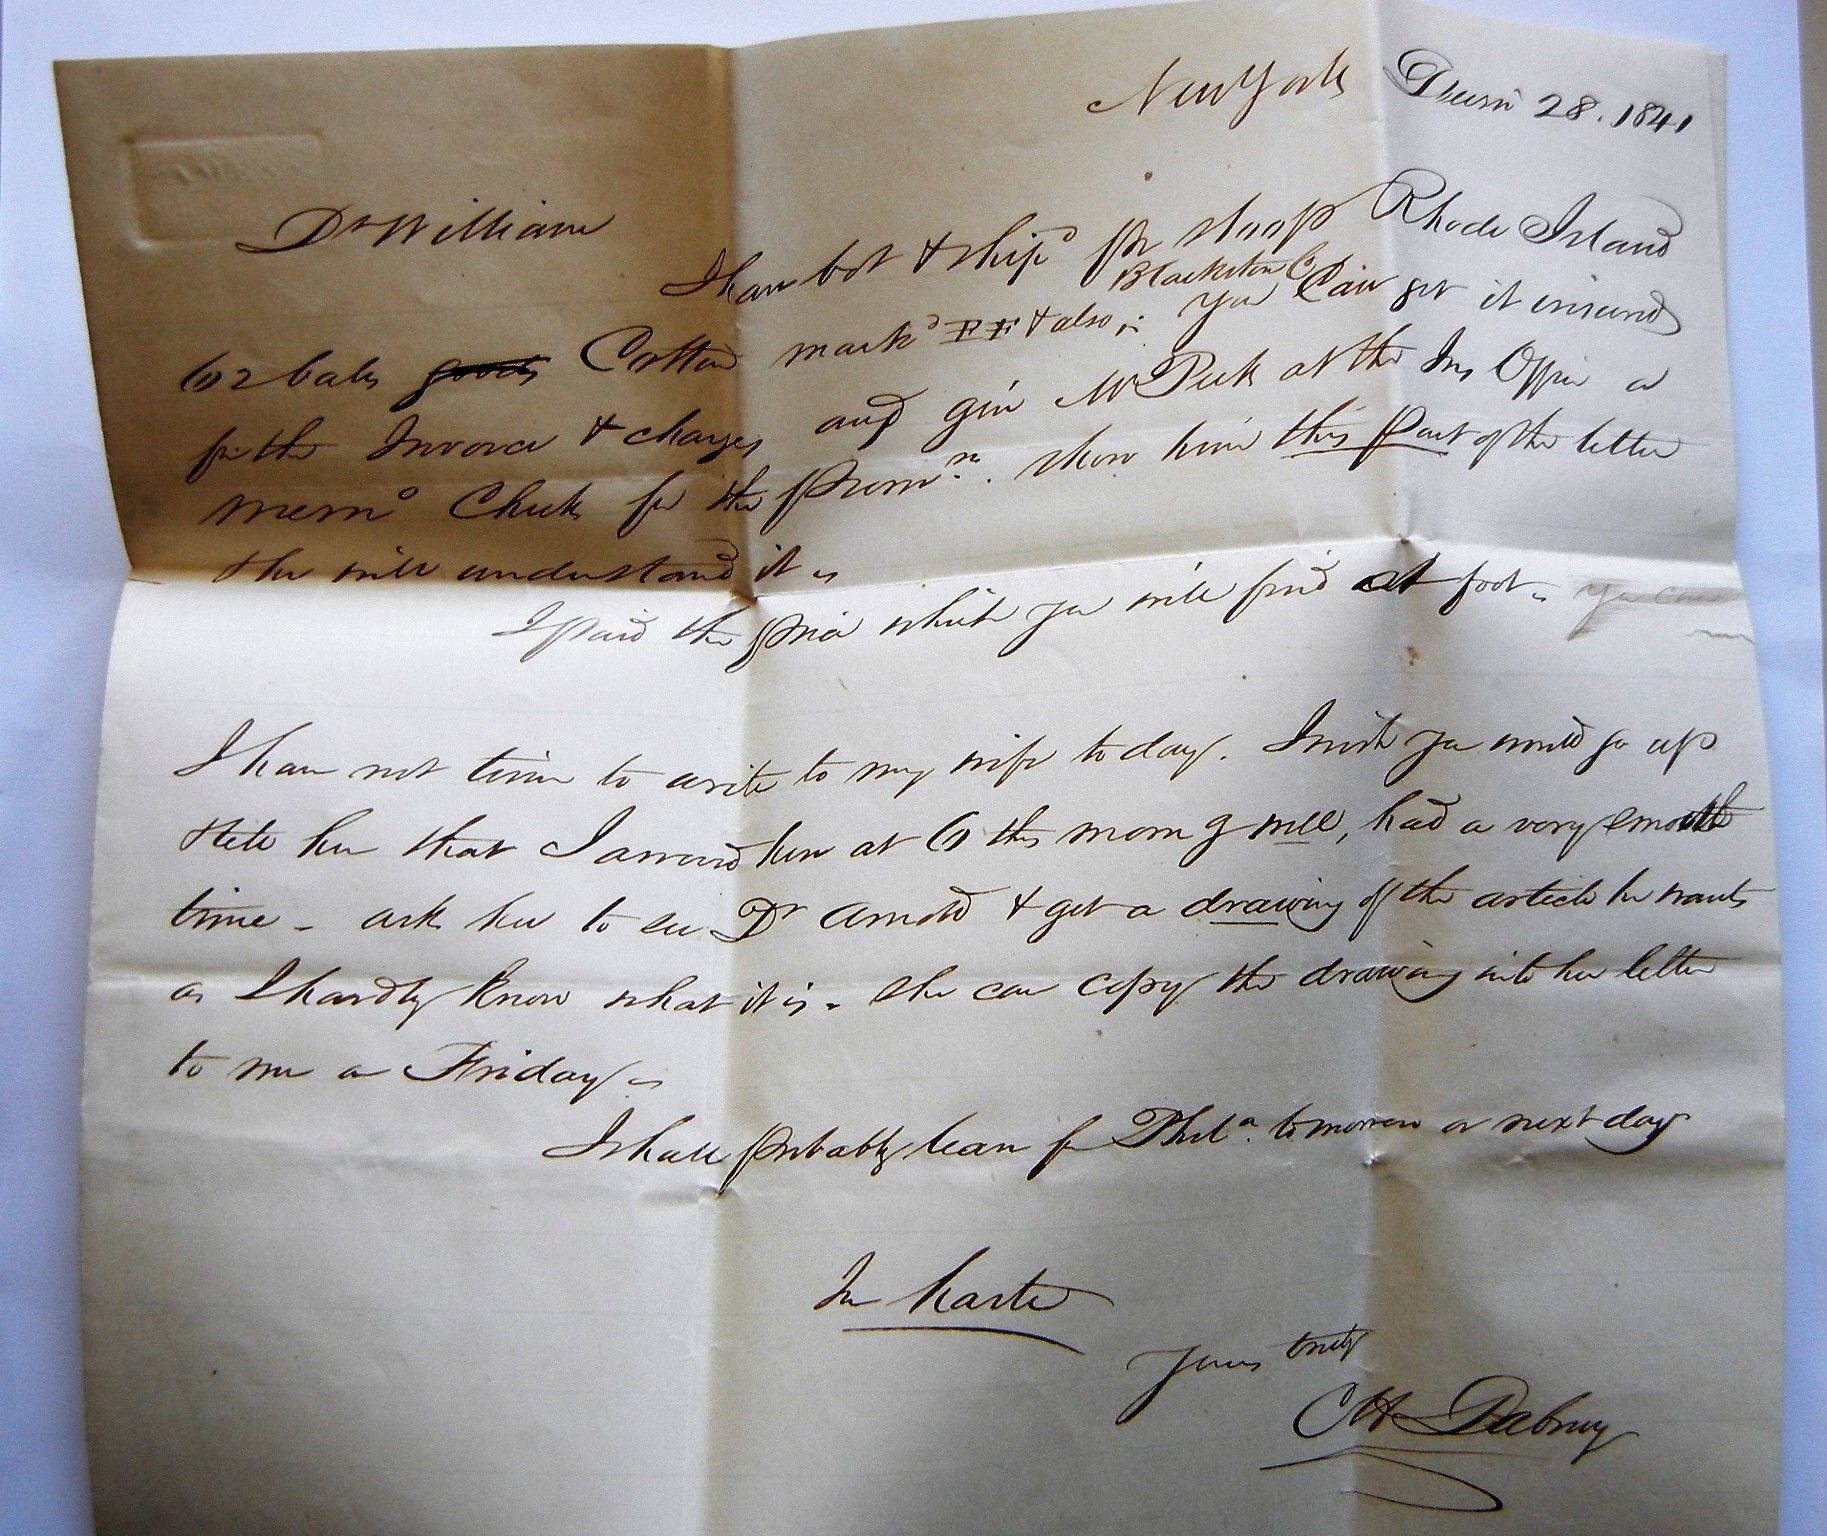 New York Decem 28. 1841
Dr William
I have bot & ship'd pr sloop Rhode Island
Blackston Co
62 bales goods Cotton mark'd FF & also, You can get it insured
for the Invoice & charges and give Mr Peck at the Ins Office a
memo Check for the Prem.m show him this part of the letter
& he will understand it
I paid the price which you will find at foot. You can
I have not time to write to my wife to day. I wish you would go up
& tell her that I arrived here at 6 this morng well, had a very smooth
time - ask her to see Dr Arnold & get a drawing of the article he wants
as I hardly know what it is - she can copy the drawing into her letter
to me on Friday
I shall probably leave for Phila. tomorrow or next day
In haste
Yours truly
CH Dabney